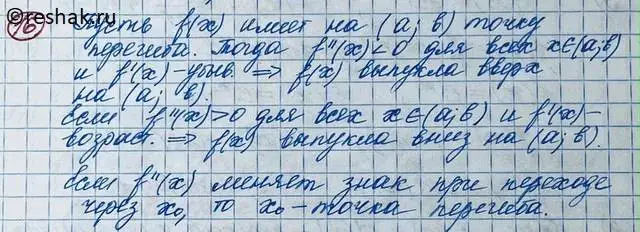 ©reshak.ru
16 Пусть f(x) имеет на (a; b) точку
перегиба. Тогда f''(x)<0 для всех x∈(a;b)
и f'(x)-убыв. ⇒ f(x) выпукла вверх
на (a; b).
Если f''(x)>0 для всех x∈(a;b) и f'(x)-
возраст. ⇒ f(x) выпукла вниз на (a; b).
Если f''(x) меняет знак при переходе
через x₀, то x₀-точка перегиба.